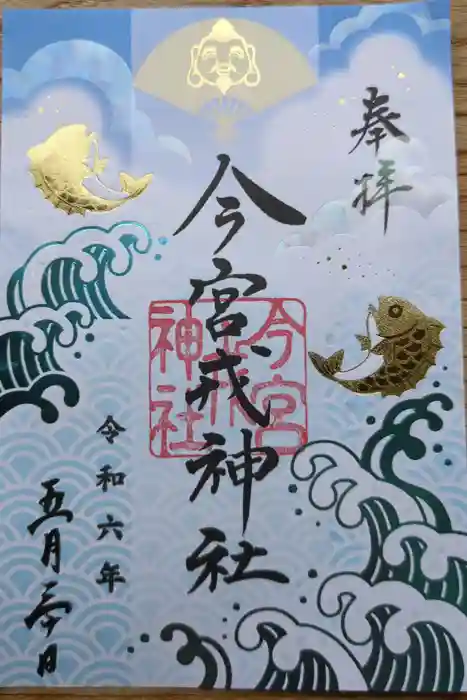 奉拝
今宮戎神社
今宮
戎
神社
令和六年
五月日